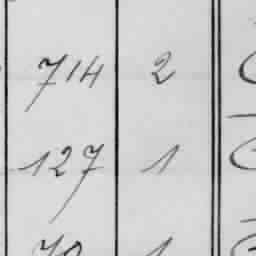 714 2
127 1
70 1